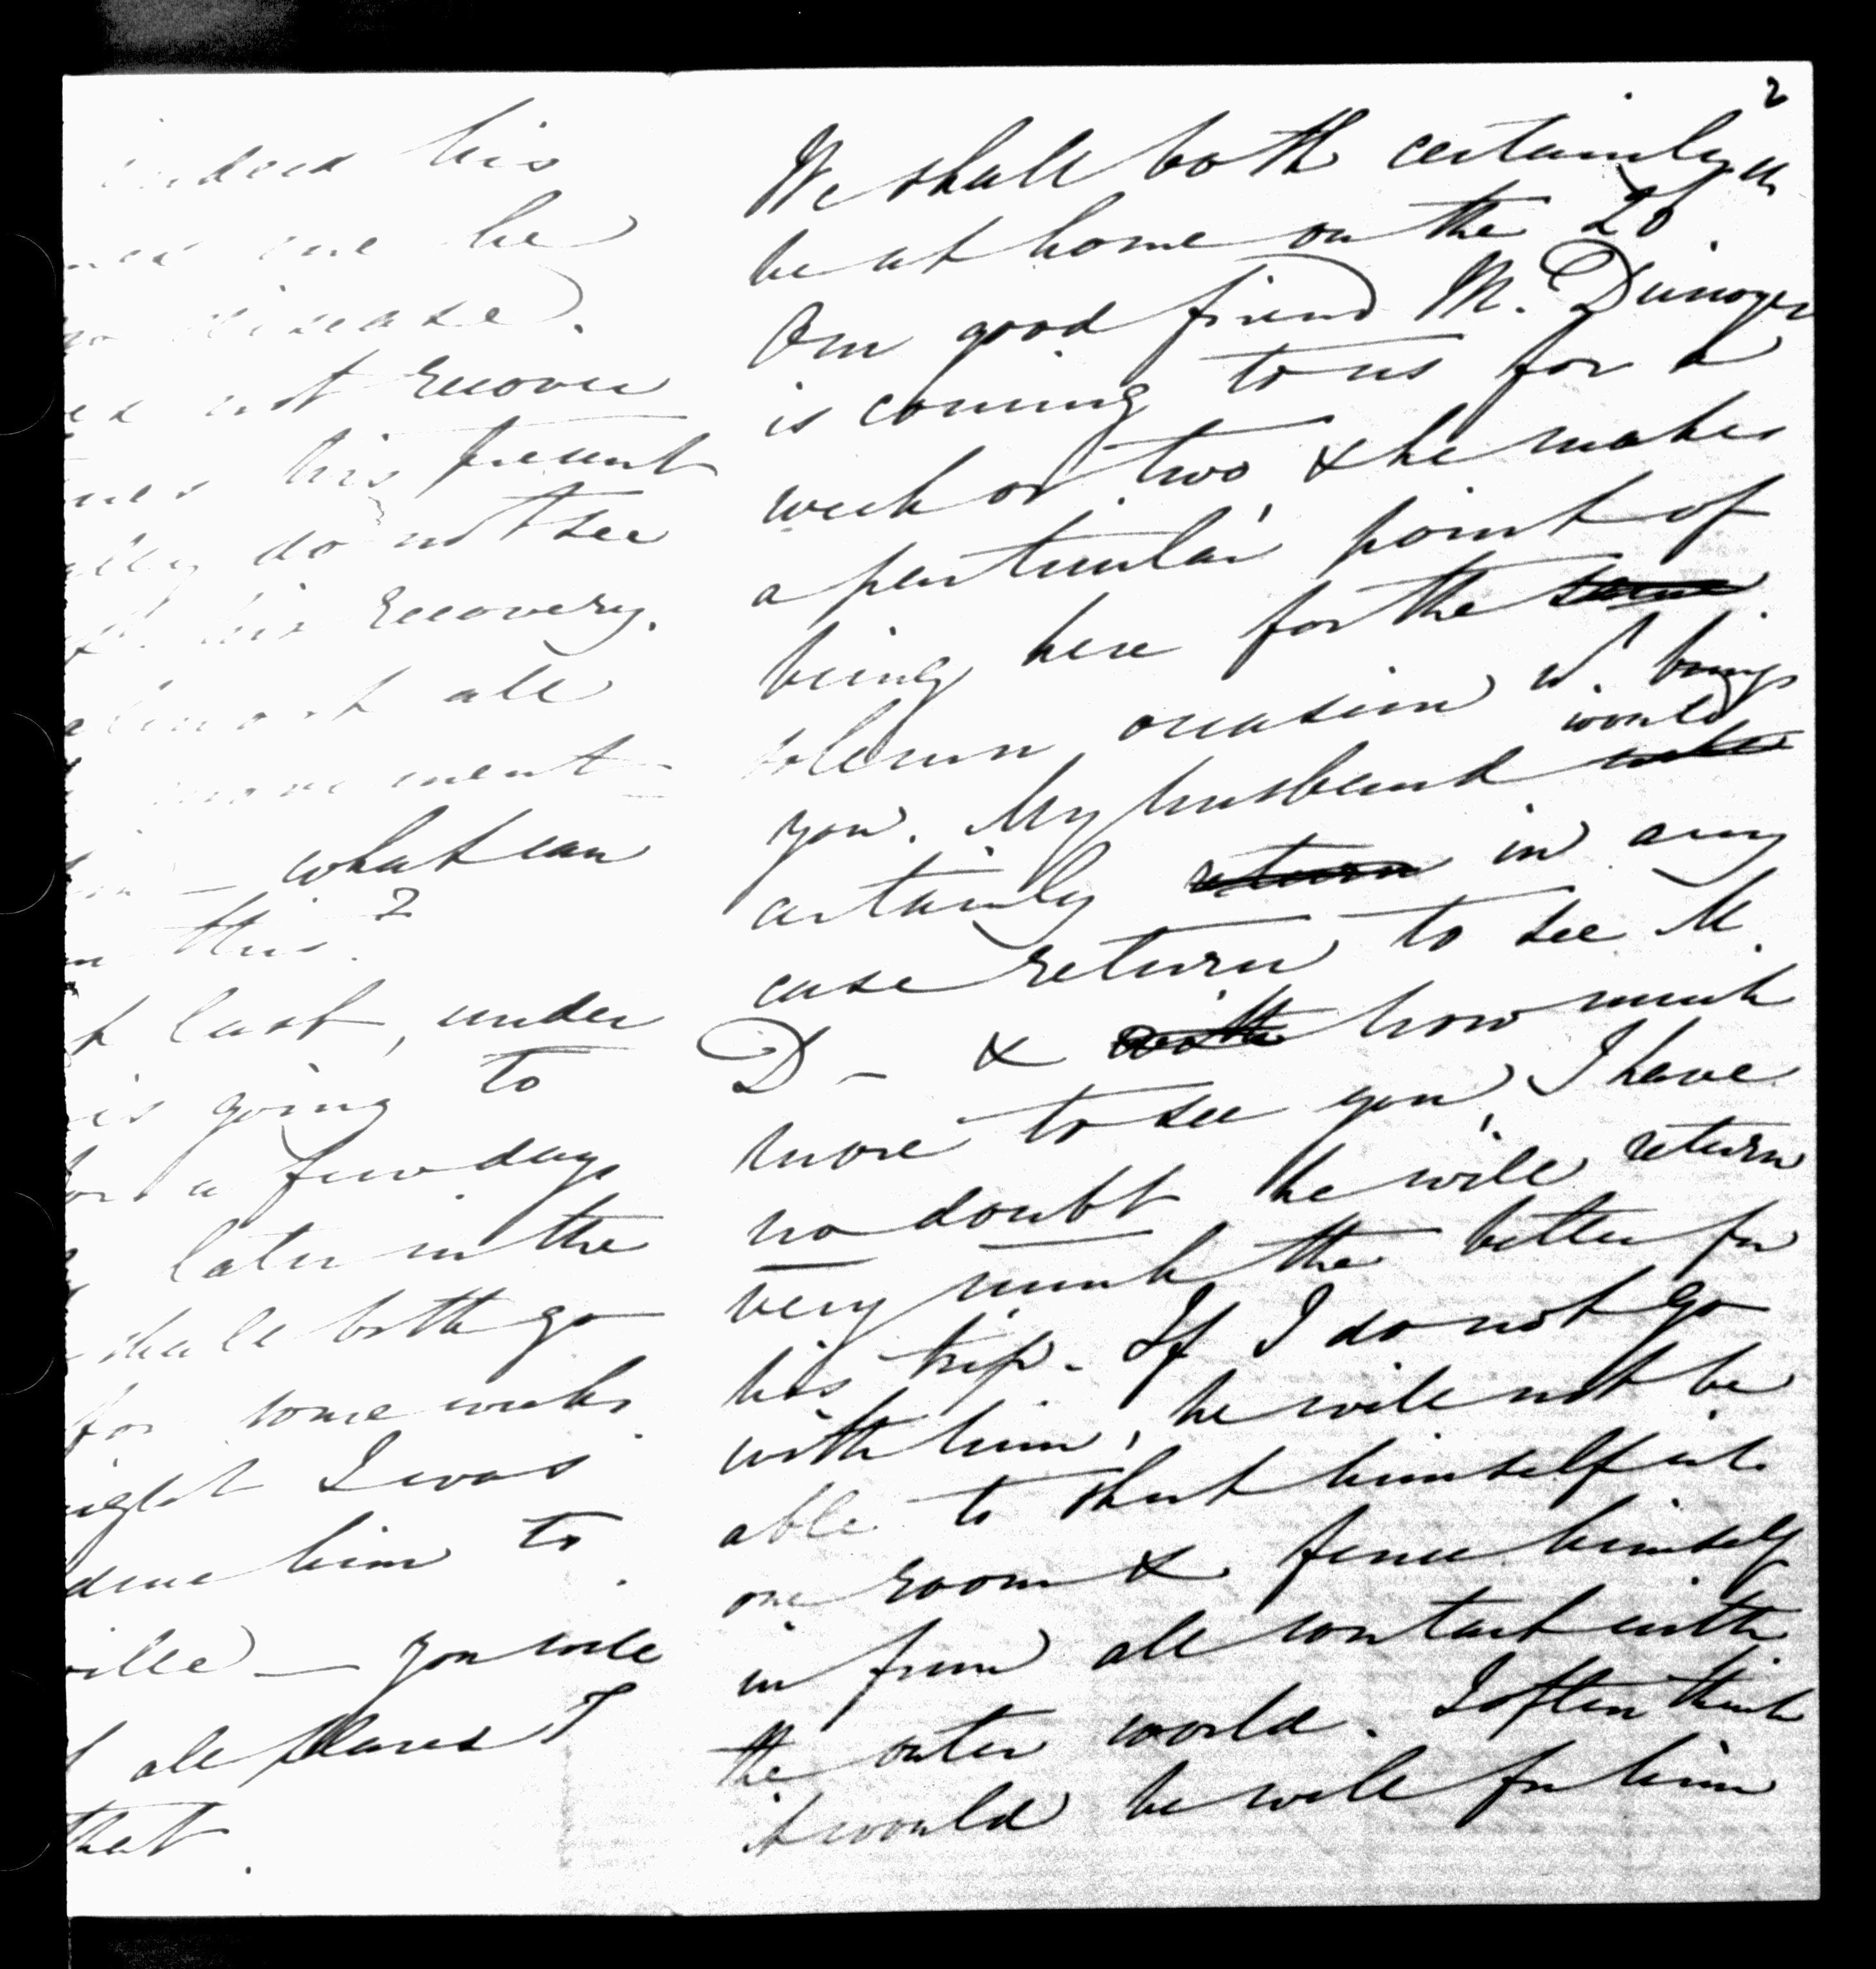 indeed his
me he
disease.
not recover
his present
do not see
his recovery.
almost all
movement
what can
this?
last, under
is going to
for a few days
later in the
shall both go
for some weeks
I was
him to
ville — you will
all places
that.
2
We shall both certainly
be at home on the 20.
Our good friend M. Dunoyer
is coming to us for a
week or two, & he makes
a particular point of
being here for the same
solemn occasion wh. brings
would
you. My husband
certainly return in any
case return to see M.
D – & with how much
more to see you, I have
no doubt he will return
very much the better for
his trip. If I do not go
with him, he will not be
able to shut himself in
one room & fence himself
in from all contact with
the outer world. I often think
it would be well for him